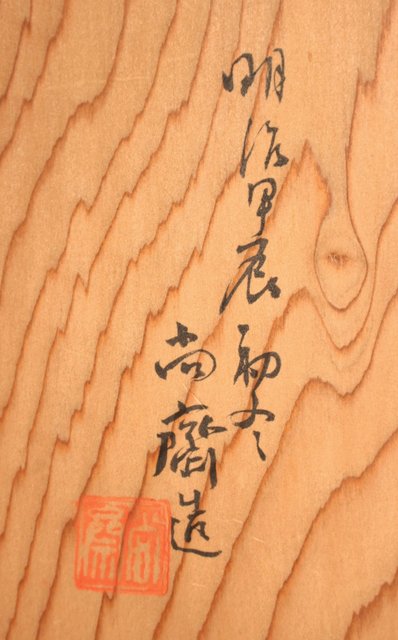 明治甲辰初冬
尚齋造